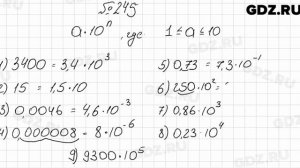 №245
GDZ.RU
a·10ⁿ, где 1≤a≤10
1) 3400 = 3,4·10³
2) 15 = 1,5·10
3) 0,0046 = 4,6·10⁻³
4) 0,000008 = 8·10⁻⁶
5) 0,73 = 7,3·10⁻¹
6) 250·10² =
7) 0,86·10³
8) 0,23·10⁴
9) 9300·10⁵
GDZ.RU